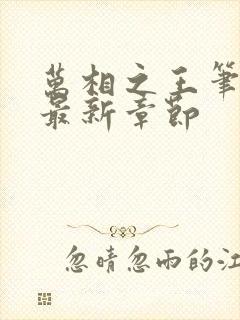 萬相之王筆
最新章節
忽晴忽雨的江